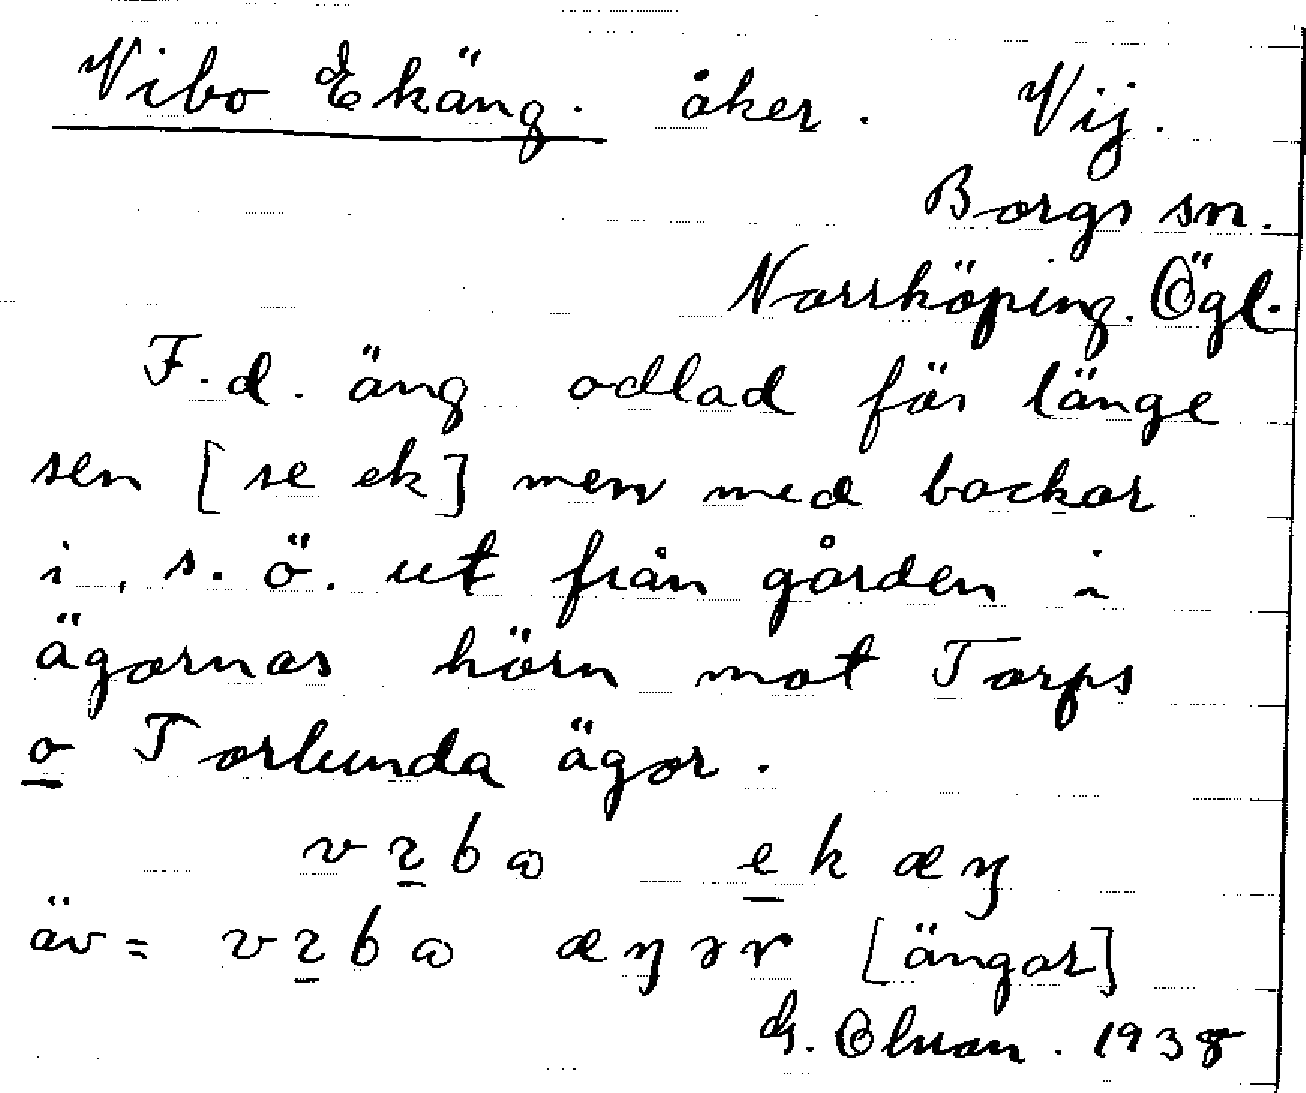 Vibo Ekäng. åker. Vij.
Borgs sn.
Norrköping. Ögl.
F.d. äng odlad för länge
sen [se ek] men med backar
i, s.ö. ut från gården i
ägornas hörn mot Torps
o Torlunda ägor.
vɩbɷ ekæŋ
äv = vɩbɷ æŋər [ängar]
G. Olsson. 1938